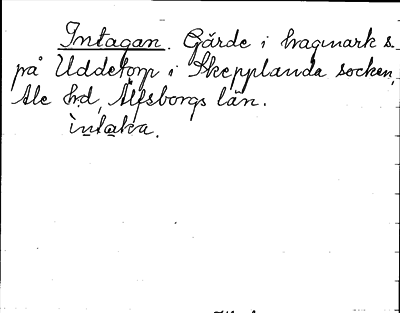 Intagan. Gärde i hagmark s.
på Uddetorp i Skepplanda socken,
Ale hd, Älfsborgs län.
ìnta̱ka.